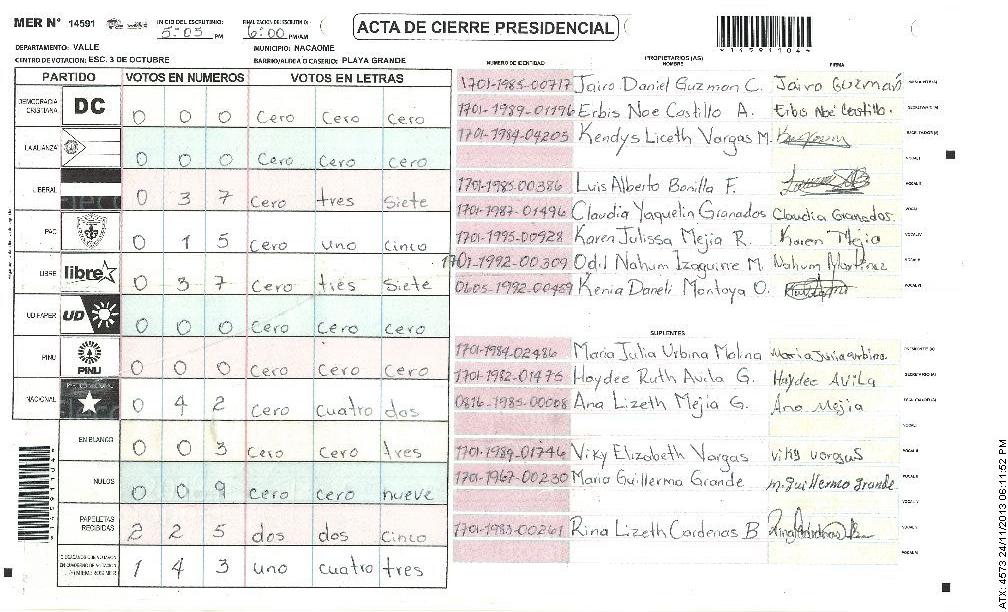 MER N° 14591 INICIO DEL ESCRUTINIO: 5:05 PM FINALIZACION DE ESCRUTINIO: 6:00 PM/AM ACTA DE CIERRE PRESIDENCIAL
DEPARTAMENTO: VALLE MUNICIPIO: NACAOME
CENTRO DE VOTACION: ESC. 3 DE OCTUBRE BARRIO/ALDEA O CASERIO: PLAYA GRANDE
PARTIDO VOTOS EN NUMEROS VOTOS EN LETRAS
DEMOCRACIA CRISTIANA DC 0 0 0 Cero Cero Cero
LA ALIANZA 0 0 0 Cero Cero Cero
LIBERAL 0 3 7 Cero tres Siete
PAC 0 1 5 Cero uno Cinco
LIBRE libre 0 3 7 Cero tres Siete
UD FAPER UD 0 0 0 Cero Cero Cero
PINU PINU 0 0 0 Cero Cero Cero
NACIONAL 0 4 2 Cero Cuatro dos
EN BLANCO 0 0 3 Cero Cero tres
NULOS 0 0 9 Cero Cero nueve
PAPELETAS RECIBIDAS 2 2 5 dos dos Cinco
1 4 3 uno cuatro tres
PROPIETARIOS (AS)
NUMERO DE IDENTIDAD NOMBRE FIRMA
1701-1985-00717 Jairo Daniel Guzman C. Jairo Guzman
1701-1989-01196 Erbis Noe Castillo A. Erbis Noé Castillo.
1701-1984-04205 Kendys Liceth Vargas M.
1701-1985-00386 Luis Alberto Bonilla F.
1701-1987-01496 Claudia Yaquelin Granados Claudia Granados.
1701-1995-00928 Karen Julissa Mejia R. Karen Mejia
1701-1992-00309 Odil Nahum Izaguirre M. Nahum Martinez
0605-1992-00459 Kenia Daneli Montoya O.
SUPLENTES
1701-1984-02486 Maria Julia Urbina Molina Maria Julia urbina
1701-1982-01475 Haydee Ruth Avila G. Haydee Avila
0816-1985-00008 Ana Lizeth Mejia G. Ana Mejia
1701-1989-01746 Viky Elizabeth Vargas viky vargas
1701-1967-00230 Maria Guillerma Grande m. guillermo grande
1701-1983-00261 Rina Lizeth Cardenas B
ATX: 4573 24/11/2013 06:11:52 PM